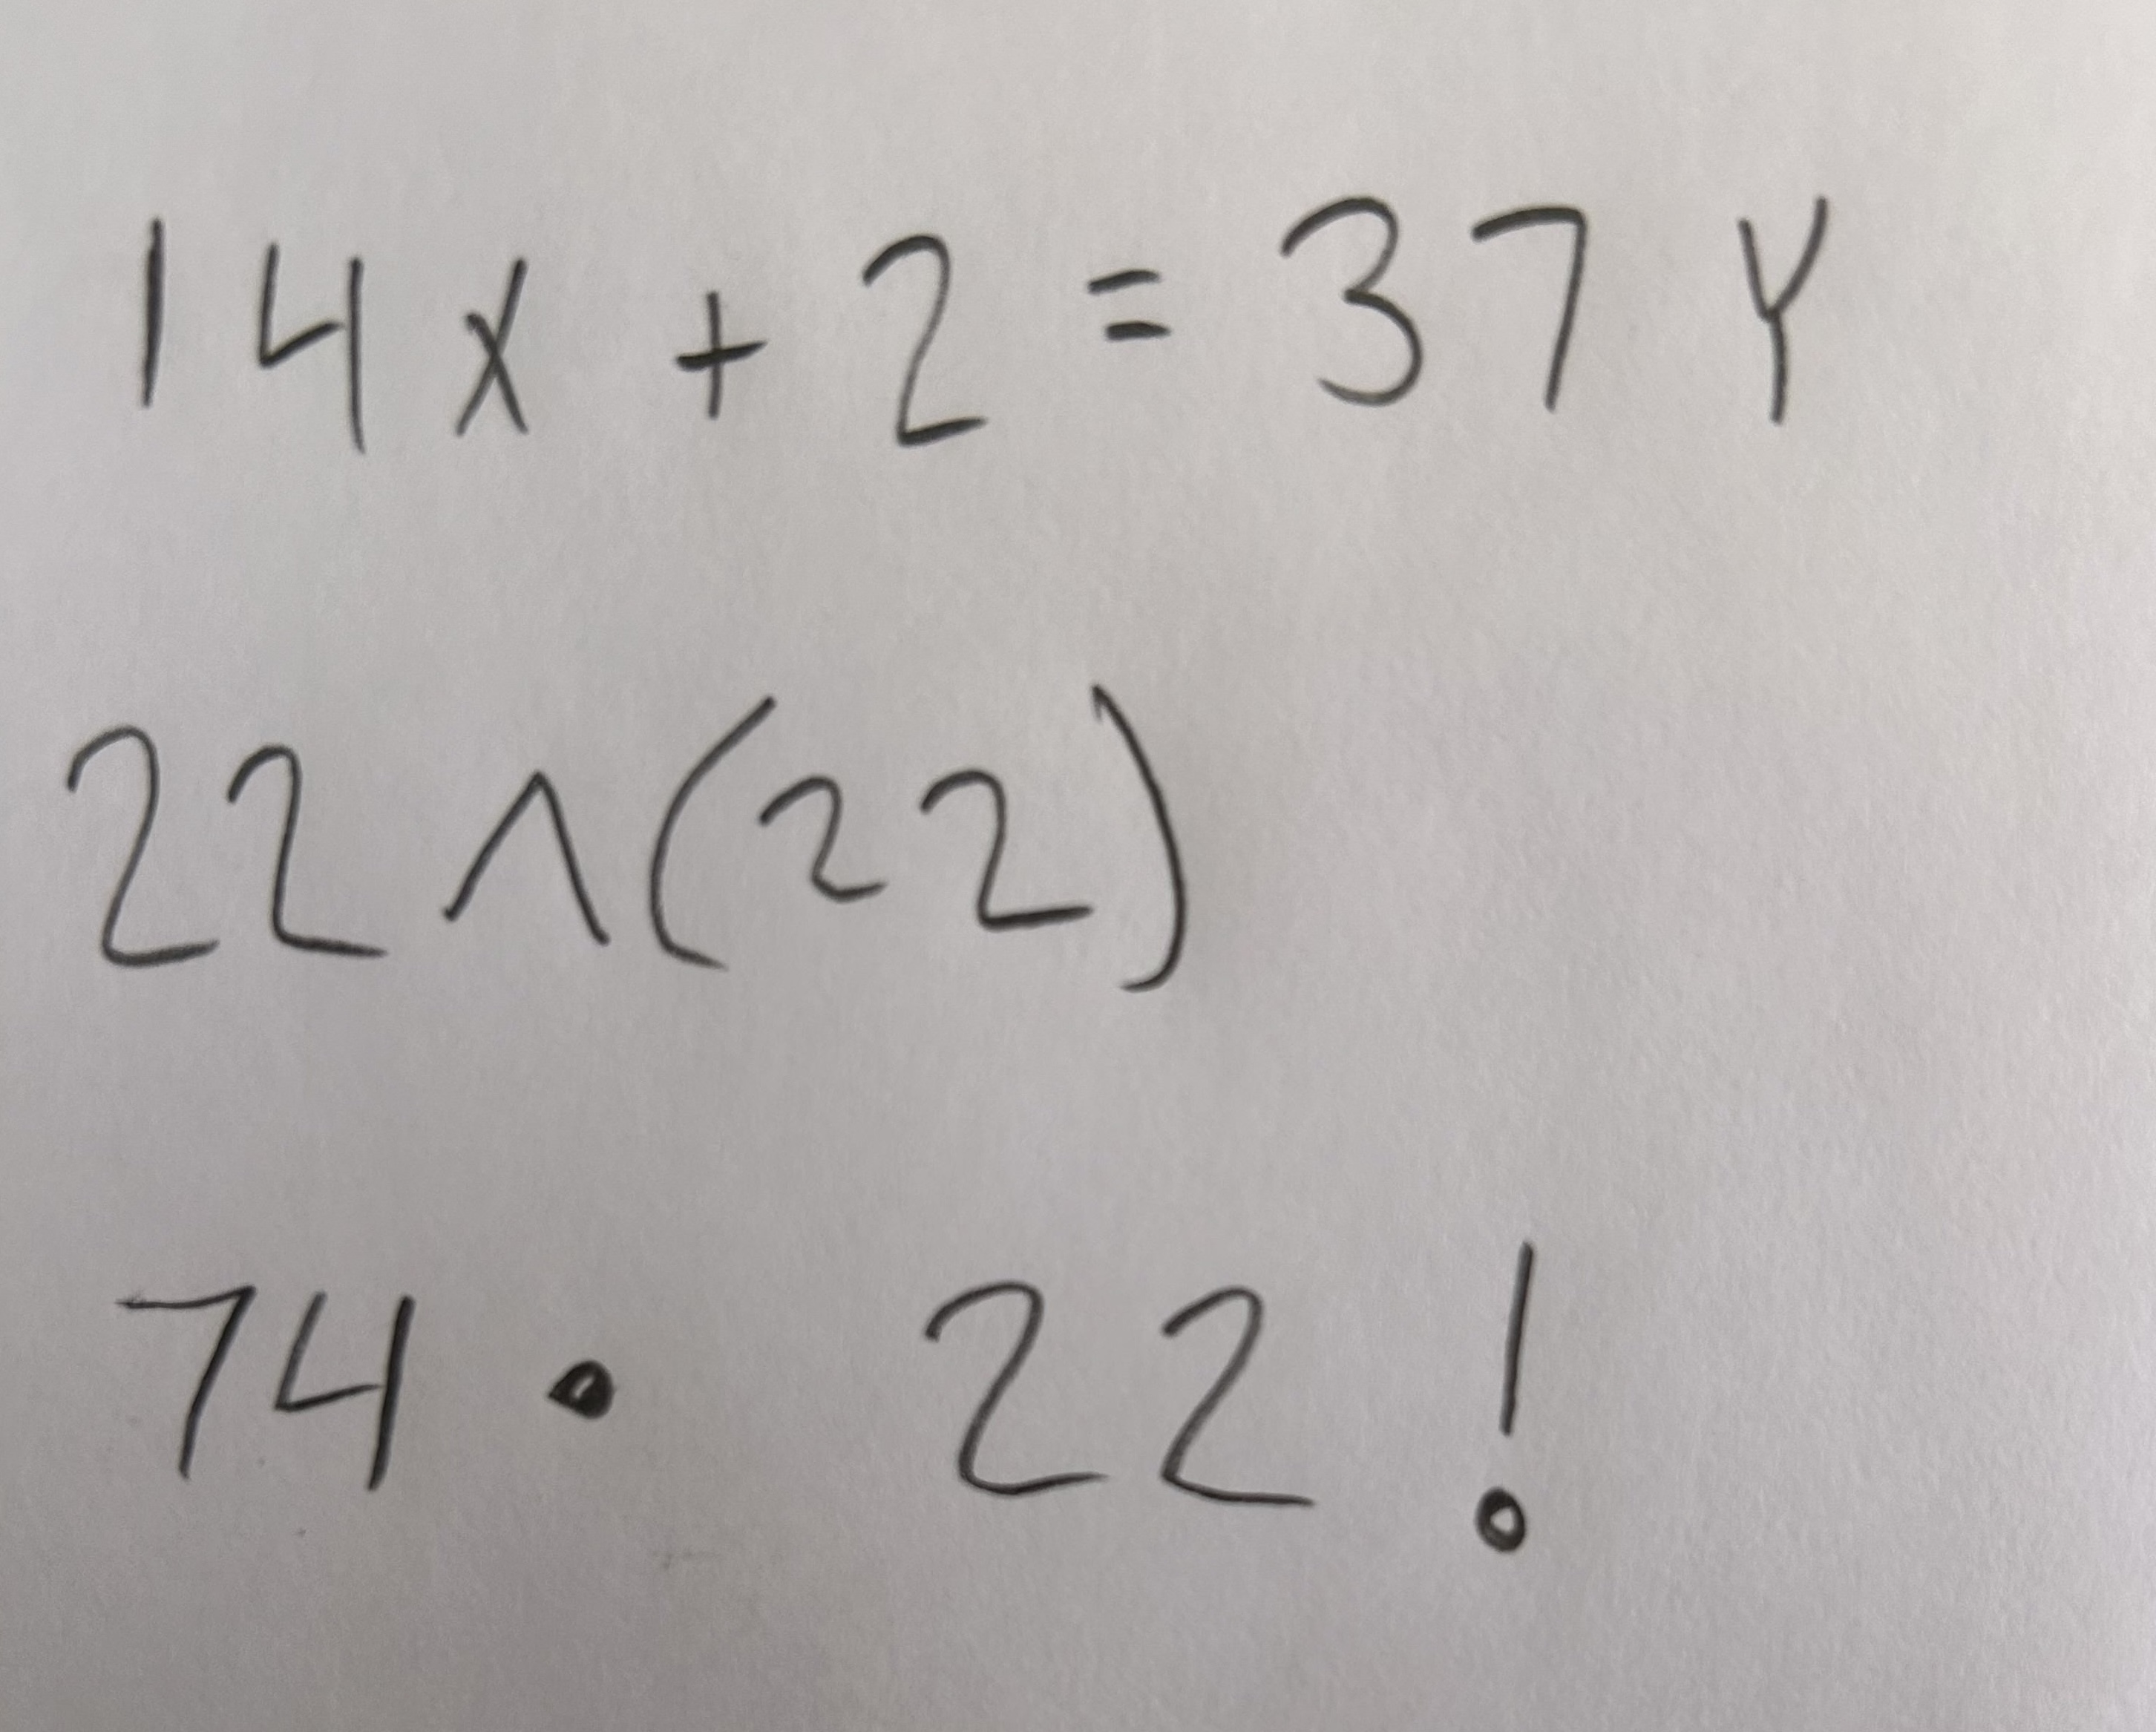 14x + 2 = 37 Y
22 ^ (22)
74 • 22 !